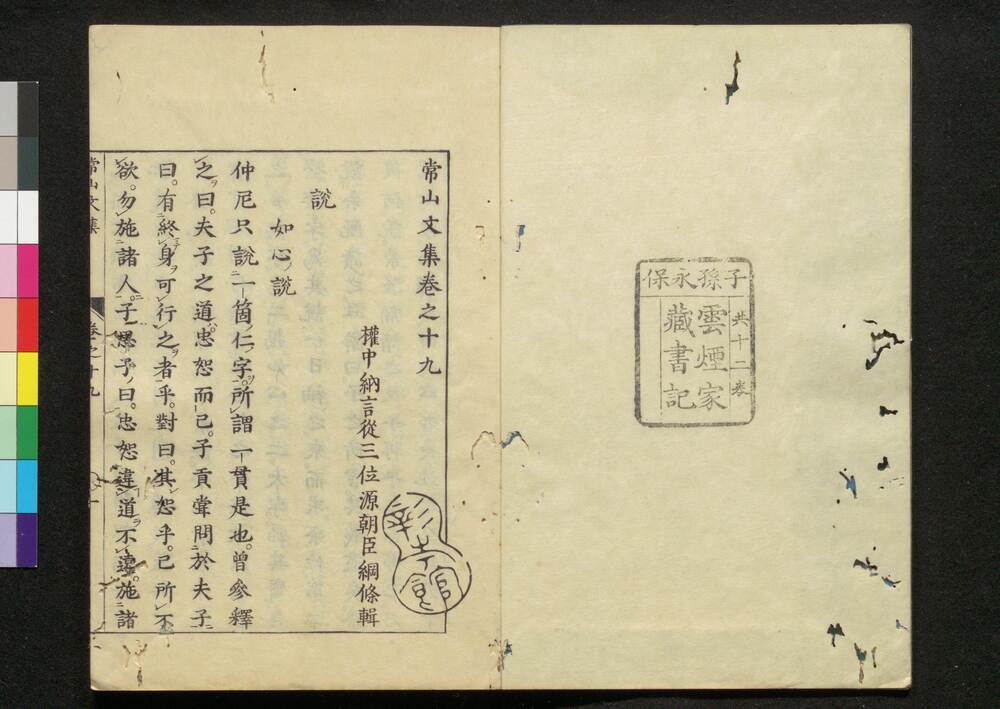 子孫永保
共十二卷
雲煙家
藏書記
常山文集卷之十九
權中納言從三位源朝臣綱條輯
彰考館
說
如心ノ說
仲尼只說ニ一箇ノ仁ノ字ヲ所謂一貫是也。曾參釋
之ヲ曰。夫子之道。忠恕而已。子貢嘗問於夫子ニ
曰。有終身可行之者乎。對曰。其恕乎。己所不
欲。勿施諸人ニ。子思子ノ曰。忠恕違道ヲ不遠。施諸
常山文集
卷之十九
一